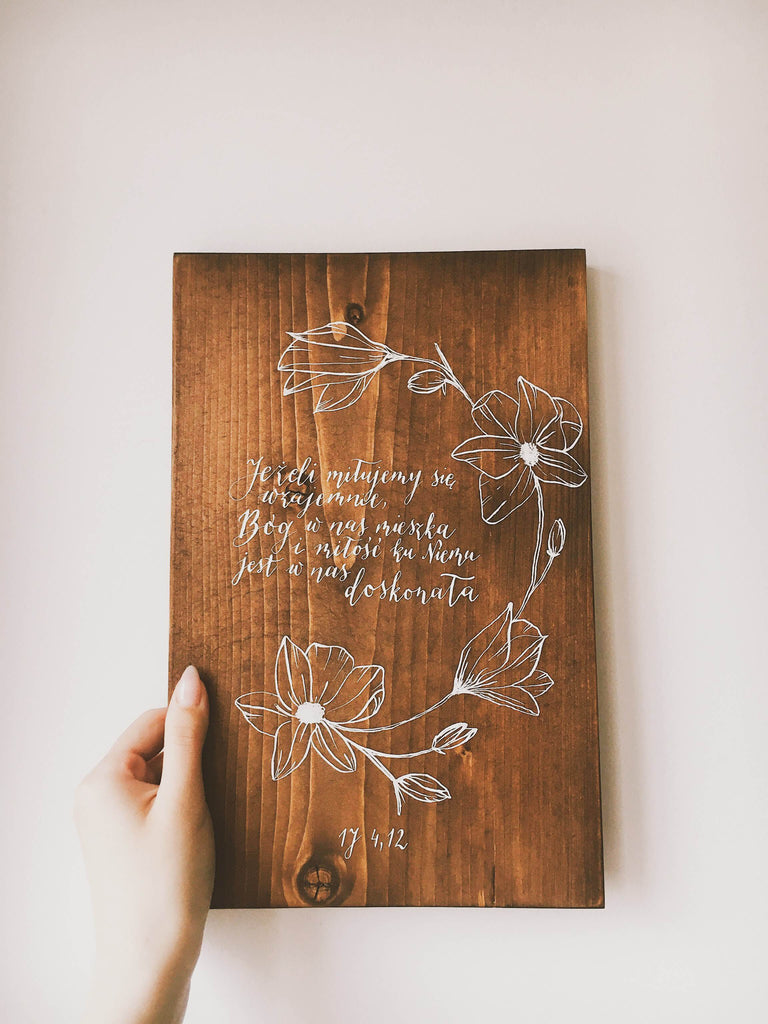 Jeżeli miłujemy się
wzajemnie,
Bóg w nas mieszka
i miłość ku Niemu
jest w nas
doskonała
1J 4,12